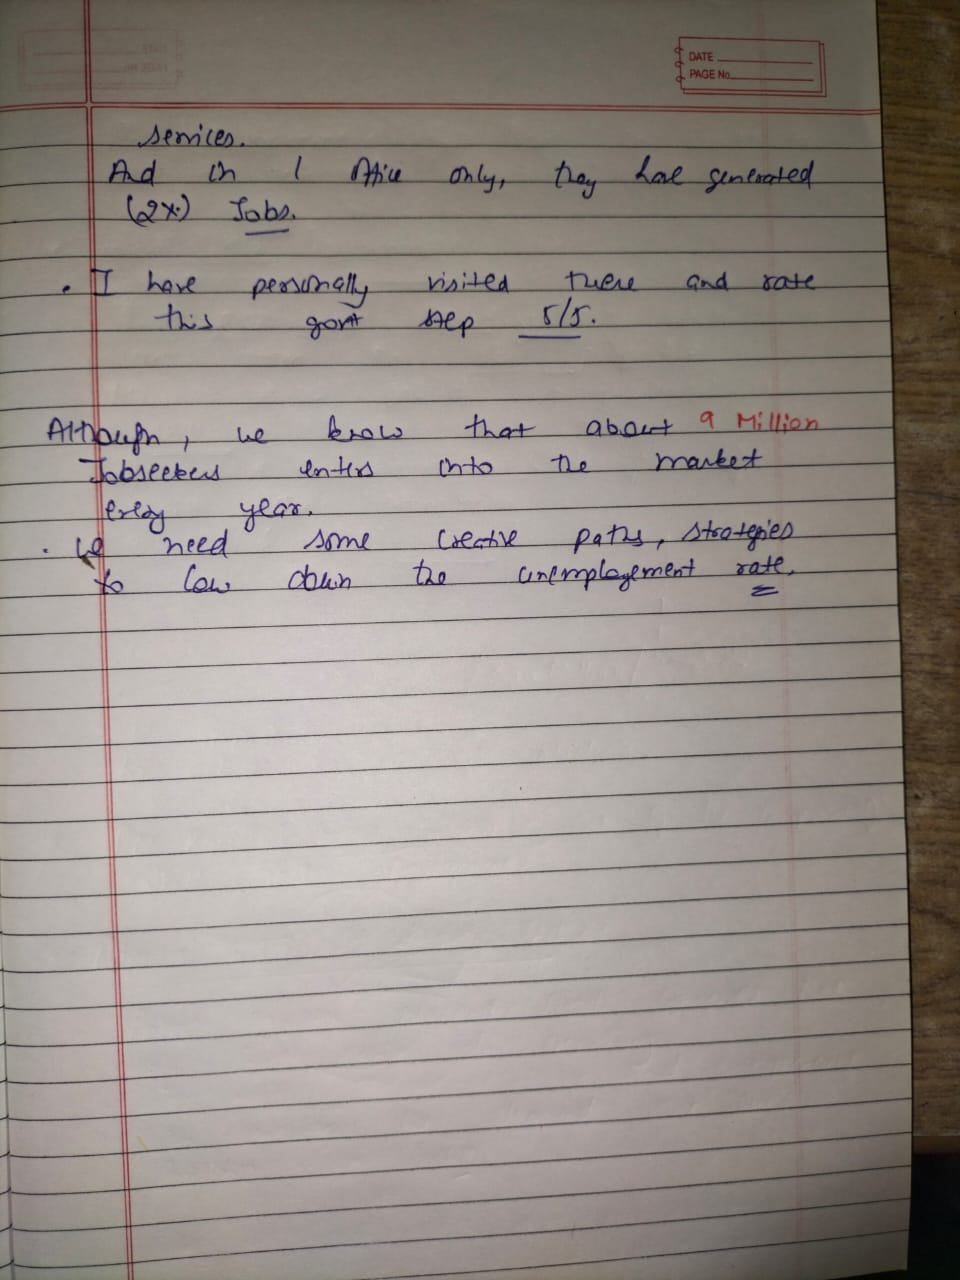 DATE
PAGE No.
services.
And in 1 office only, they have generated
(2x) Jobs.
• I have personally visited there and rate
this govt step 5/5.
Although, we know that about 9 Million
Jobseekers enters into the market
every year.
• We need some creative paths, strategies
to low down the unemployement rate.